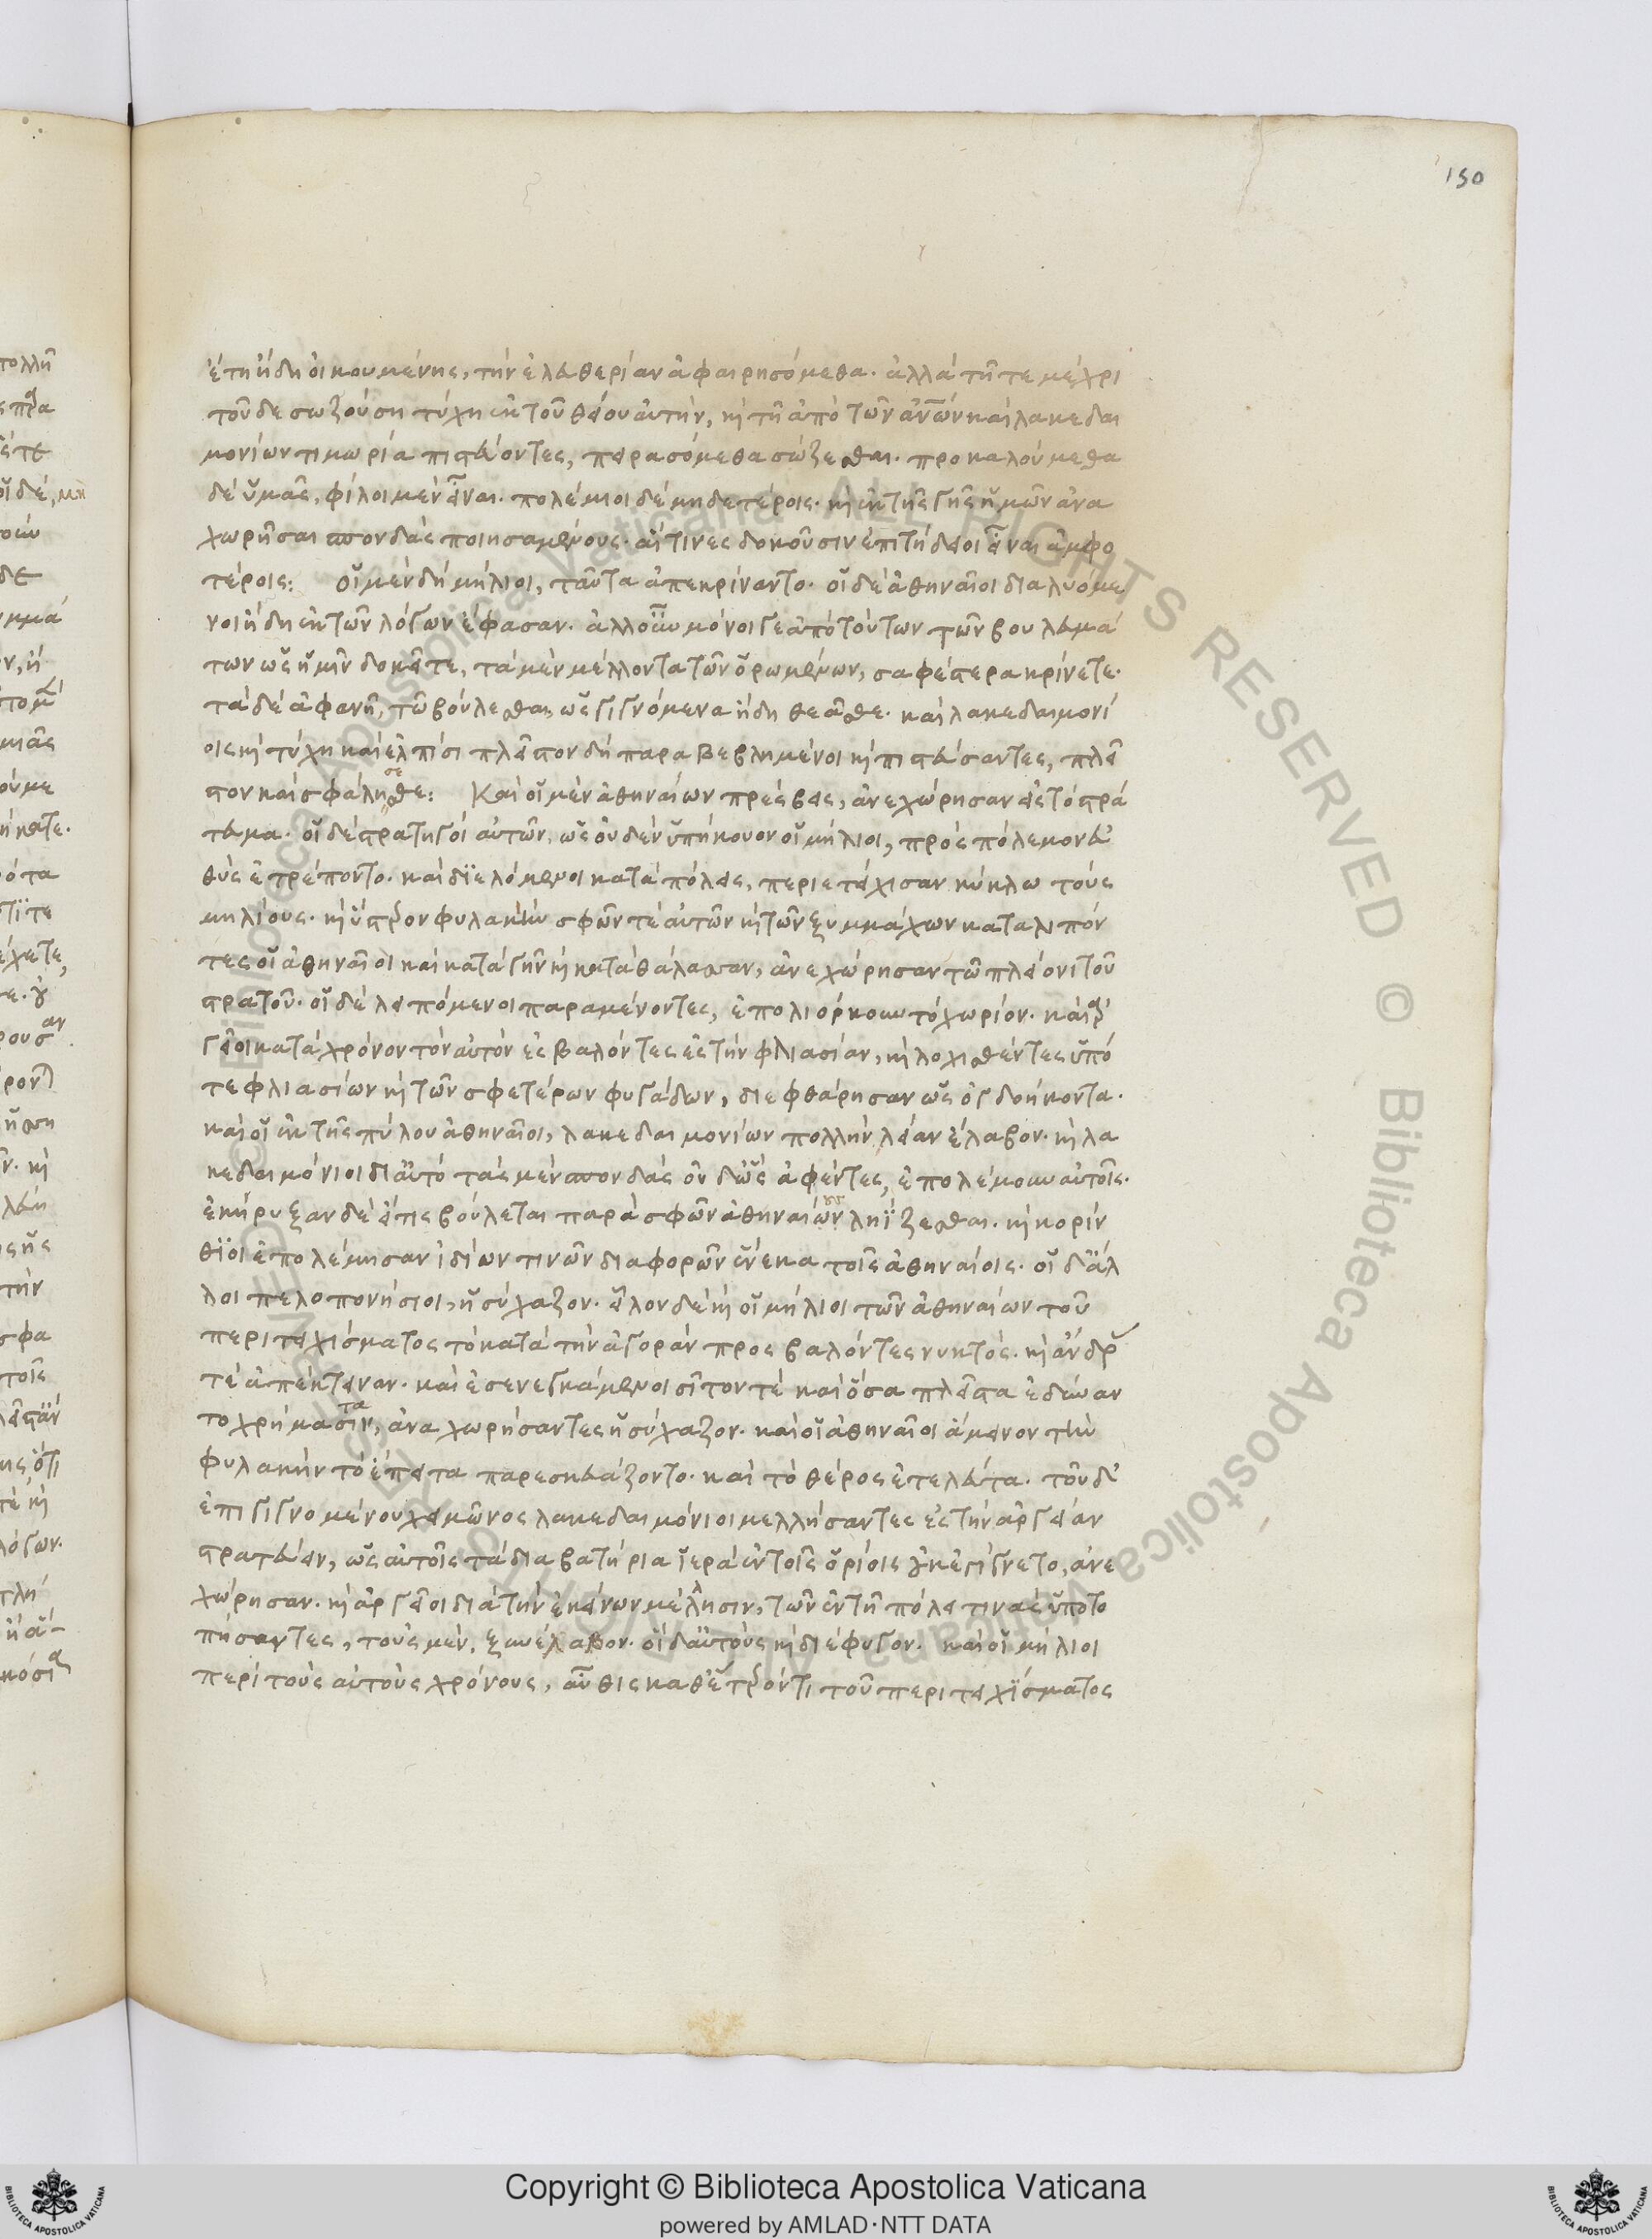 150
ἔτη ἤδη οἰκουμένης, τὴν ἐλευθερίαν ἀφαιρησόμεθα. ἀλλὰ τῆ τε μέχρι
τοῦδε σωζούση τύχη ἐκ τοῦ θείου αὐτὴν, κὶ τῆ ἀπὸ τῶν ἀνων καὶ λακεδαι
μονίων τιμωρία πιστεύοντες, πειρασόμεθα σώζεσθαι. προκαλούμεθα
δὲ ὑμᾶς, φίλοι μὲν εἶναι. πολέμιοι δὲ μηδετέροις. κὶ ἐκ τῆς γῆς ἡμῶν ἀνα
χωρῆσαι σπονδὰς ποιησαμένους. αἵτινες δοκοῦσιν ἐπιτήδειοι εἶναι ἀμφο
τέροις: οἱ μὲν δὴ μήλιοι, ταῦτα ἀπεκρίναντο. οἱ δὲ ἀθηναῖοι διαλυόμε
νοι ἤδη ἐκ τῶν λόγων ἔφασαν. ἀλλ οὖν μόνοι γε ἀπὸ τούτων τῶν βουλευμά
των ὡς ἡμῖν δοκεῖτε, τὰ μὲν μέλλοντα τῶν ὁρωμένων, σαφέστερα κρίνετε.
τὰ δὲ ἀφανῆ, τῶ βούλεσθαι, ὡς γιγνόμενα ἤδη θεᾶσθε. καὶ λακεδαιμονί
οις κὶ τύχη καὶ ἐλπίσι πλεῖστον δὴ παραβεβλημένοι κὶ πιστεύσαντες, πλεῖ
στον καὶ σφάλησθε: σε Καὶ οἱ μὲν ἀθηναίων πρέσβεις, ἀνεχώρησαν εἰς τὸ στρά
τευμα. οἱ δὲ στρατηγοὶ αὐτῶν, ὡς οὐδὲν ὑπήκουον οἱ μήλιοι, πρὸς πόλεμον εὐ
θὺς ἐτρέποντο. καὶ διελόμενοι κατὰ πόλεις, περιετείχισαν κύκλω τοὺς
μηλίους. κὶ ὕστερον φυλακὴν σφῶν τὲ αὐτῶν κὶ τῶν ξυμμάχων καταλιπόν
τες οἱ ἀθηναῖοι καὶ κατὰ γῆν κὶ κατὰ θάλασσαν, ἀνεχώρησαν τῶ πλείονι τοῦ
στρατοῦ. οἱ δὲ λειπόμενοι παραμένοντες, ἐπολιόρκουν τὸ χωρίον. καὶ ἀρ
γεῖοι κατὰ χρόνον τὸν αὐτὸν ἐσβαλόντες ἐς τὴν φλιασίαν, κὶ λοχισθέντες ὑπό
τε φλιασίων κὶ τῶν σφετέρων φυγάδων, διεφθάρησαν ὡς ὀγδοήκοντα.
καὶ οἱ ἐκ τῆς πύλου ἀθηναῖοι, λακεδαιμονίων πολλὴν λείαν ἔλαβον. κὶ λα
κεδαιμόνιοι δι αὐτὸ τὰς μὲν σπονδὰς οὐδ ὣς ἀφέντες, ἐπολέμουν αὐτοῖς.
ἐκήρυξαν δὲ εἴ τις βούλεται παρὰ σφῶν ἀθηναίων ους ληΐζεσθαι. κὶ κορίν
θϊοι ἐπολέμησαν ἰδίων τινῶν διαφορῶν ἕνεκα τοῖς ἀθηναίοις. οἱ δ ἄλ
λοι πελοπονήσιοι, ἡσύχαζον. εἷλον δὲ κὶ οἱ μήλιοι τῶν ἀθηναίων τοῦ
περιτειχίσματος τὸ κατὰ τὴν ἀγορὰν προσβαλόντες νυκτός. κὶ ἄνδρας
τὲ ἀπέκτειναν. καὶ ἐσενεγκάμενοι σῖτον τὲ καὶ ὅσα πλεῖστα ἐδύναν
το χρήμασιν, τα ἀναχωρήσαντες ἡσύχαζον. καὶ οἱ ἀθηναῖοι ἄμεινον τὴν
φυλακὴν τὸ ἔπειτα παρεσκευάζοντο. καὶ τὸ θέρος ἐτελεύτα. τοῦ δ
ἐπιγιγνομένου χειμῶνος λακεδαιμόνιοι μελλήσαντες ἐς τὴν ἀργείαν
στρατεύειν, ὡς αὐτοῖς τὰ διαβατήρια ἱερὰ ἐν τοῖς ὁρίοις οὐκ ἐγίγνετο, ἀνε
χώρησαν. κὶ ἀργεῖοι διὰ τὴν ἐκείνων μέλλησιν, τῶν ἐν τῆ πόλει τινὰς ὑποτο
πήσαντες, τοὺς μὲν, ξυνέλαβον. οἱ δ αὐτοὺς κὶ διέφυγον. καὶ οἱ μήλιοι
περὶ τοὺς αὐτοὺς χρόνους, αὖθις καθ ἕτερόν τι τοῦ περιτειχίσματος
Copyright © Biblioteca Apostolica Vaticana
powered by AMLAD·NTT DATA